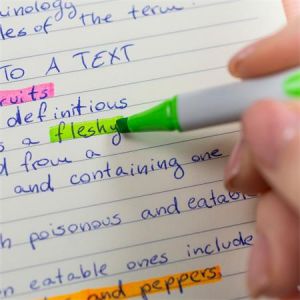 minology
les of the term.
TO A TEXT
ruits
definitious
s a fleshy
d from a
and containing one
h poisonous and eatab
n eatable ones include
and peppers